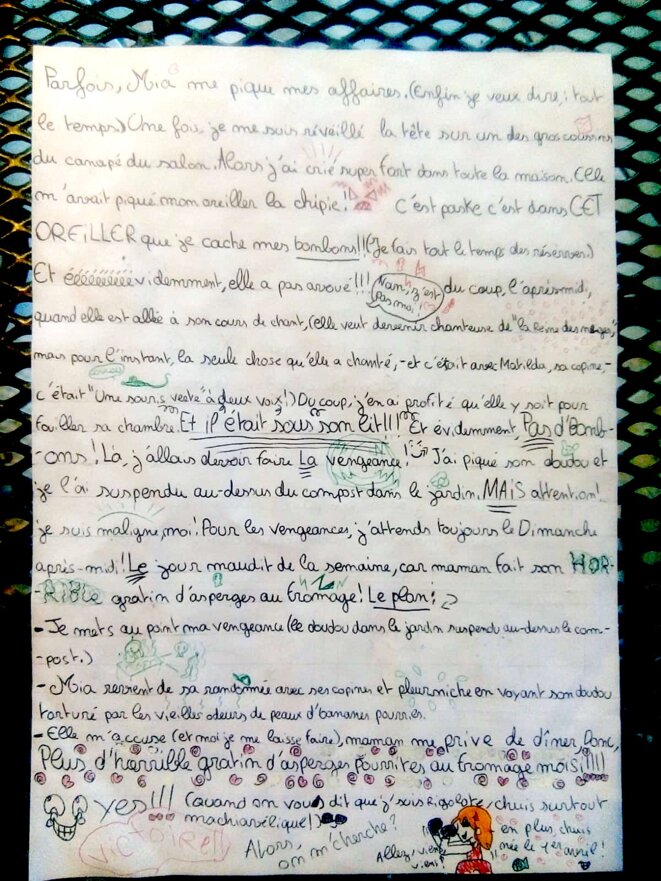 Parfois, Mia me pique mes affaires. (Enfin je veux dire, tout
le temps) Une foi, je me suis réveillé la tête sur un des gros coussins
du canapé du salon. Alors j'ai crié super fort dans toute la maison. Elle
m'avait piqué mon oreiller la chipie! C'est parske c'est dans CET
OREILLER que je cache mes bonbons!!! (Je fais tout le temps des réserves.)
Et éééééééééévidemment, elle a pas avoué!!! du coup, l'après-midi,
Nan, c'est
pas moi!
quand elle est allée à son cours de chant, (elle veut devenir chanteuse de "la Reine des neiges",
mais pour l'instant, la seule chose qu'elle a chanté, -et c'était avec Matilda, sa copine,-
c'était "Une souris verte" à deux voix!) Du coup, j'en ai profité qu'elle y soit pour
fouiller sa chambre. Et il était sous son lit!!! Et évidemment, Pas d'Bomb-
-ons! Là, j'allais devoir faire La vengeance! J'ai piqué son doudou et
je l'ai suspendu au-dessus du compost dans le jardin. MAIS attention!
je suis maligne, moi! Pour les vengeances, j'attends toujours le Dimanche
après-midi! Le jour maudit de la semaine, car maman fait son HOR-
-RIBLE gratin d'asperges au fromage! Le plan:
- Je mets au point ma vengeance (le doudou dans le jardin suspendu au-dessus le com-
-post.)
- Mia revient de sa randonnée avec ses copines et pleurniche en voyant son doudou
torturé par les vieilles odeurs de peaux d'bananes pourries.
- Elle m'accuse (et moi je me laisse faire), maman me prive de dîner Donc,
Plus d'horrible gratin d'asperges pourrites au fromage moisi!!!!!
yes!!! (quand on vous dit que j'suis Rigolote, chuis surtout
machiavélique!)
Victoire!!
Alors,
on m'cherche?
Allez, viens
viens!
en plus, chuis
née le 1er avril!